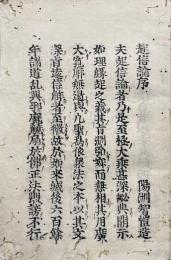 起信論序　　　揚州智愷造
夫起信論者乃是至極大乘甚深祕典開示
如理緣起之義其旨淵弘寂而無相其用廣
大寬廓無邊與凡聖為依眾法之本以其文
深旨遠信解者至微故於如來滅後六百餘
年諸道亂興邪魔競扇於佛正法毀謗不停